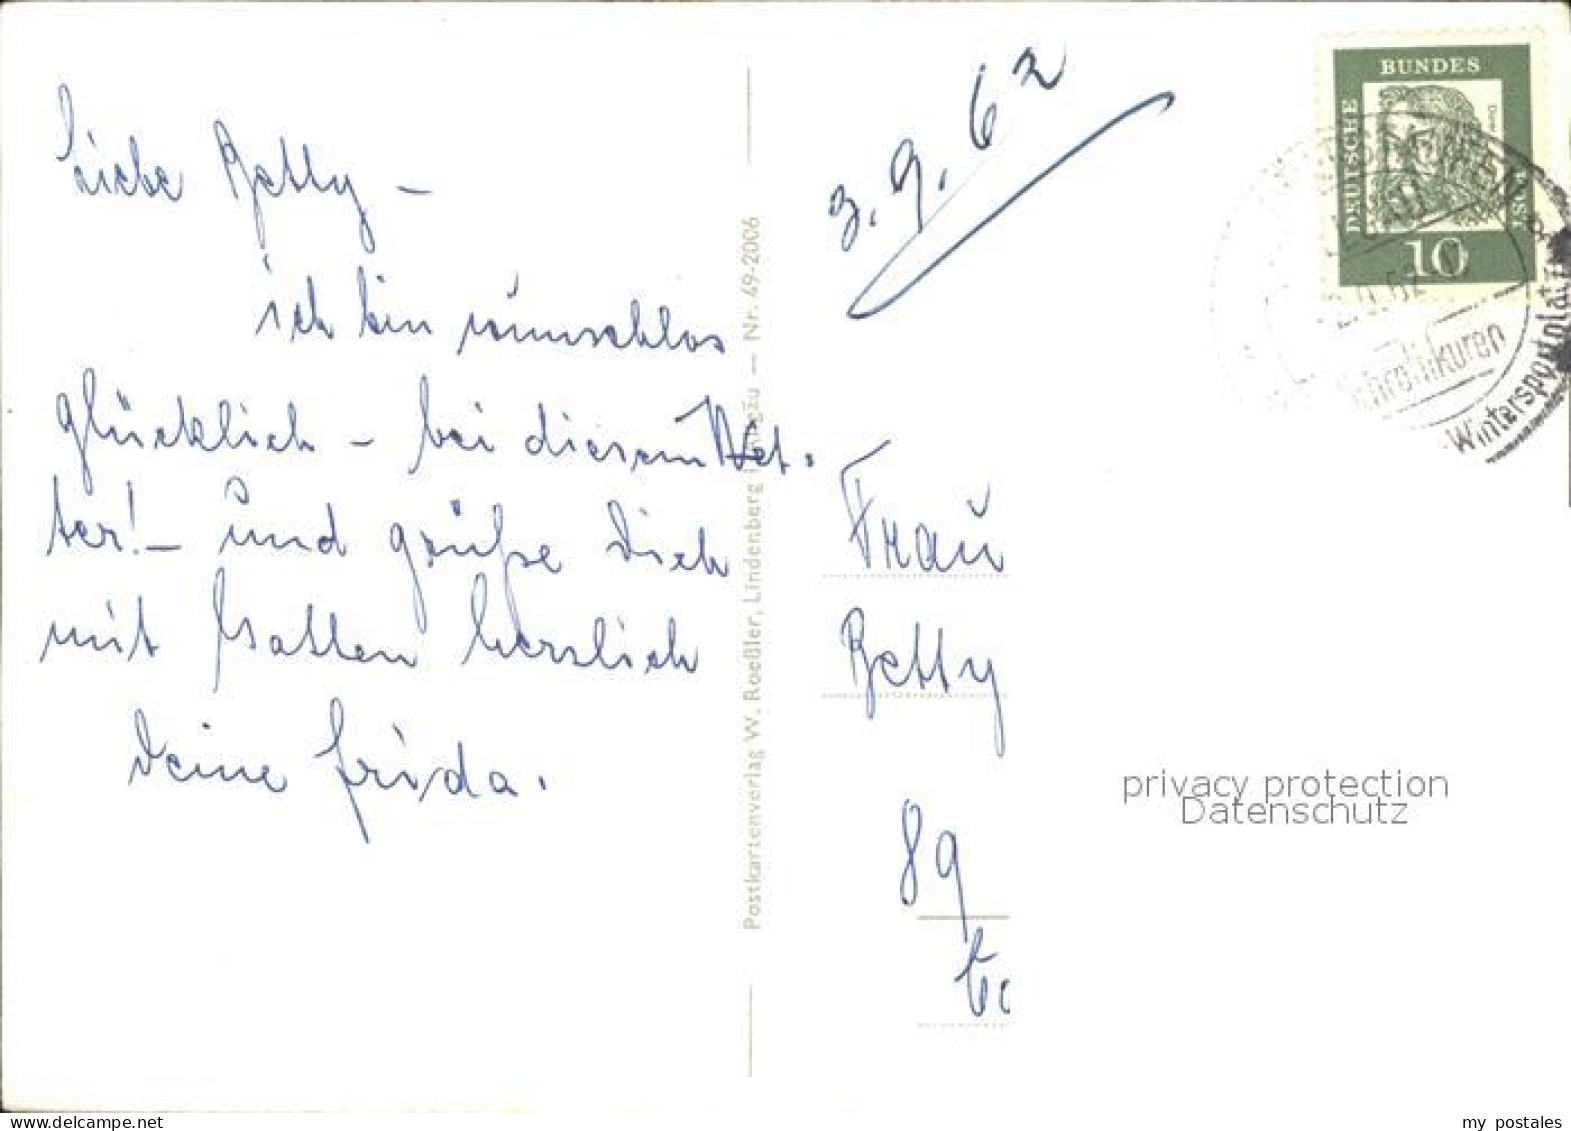 Liebe Betty –
ich bin wunschlos
glücklich – bei diesem Wet-
ter! – und grüße Dich
mit Gatten herzlich
Deine Frida.
Postkartenverlag W. Roeßler, Lindenberg i. Allgäu — Nr. 49-2006
3.9.62
DEUTSCHE
BUNDES
POST
10
Schrothkuren
Wintersportplatz
Frau
Betty
89
privacy protection
Datenschutz
my postales